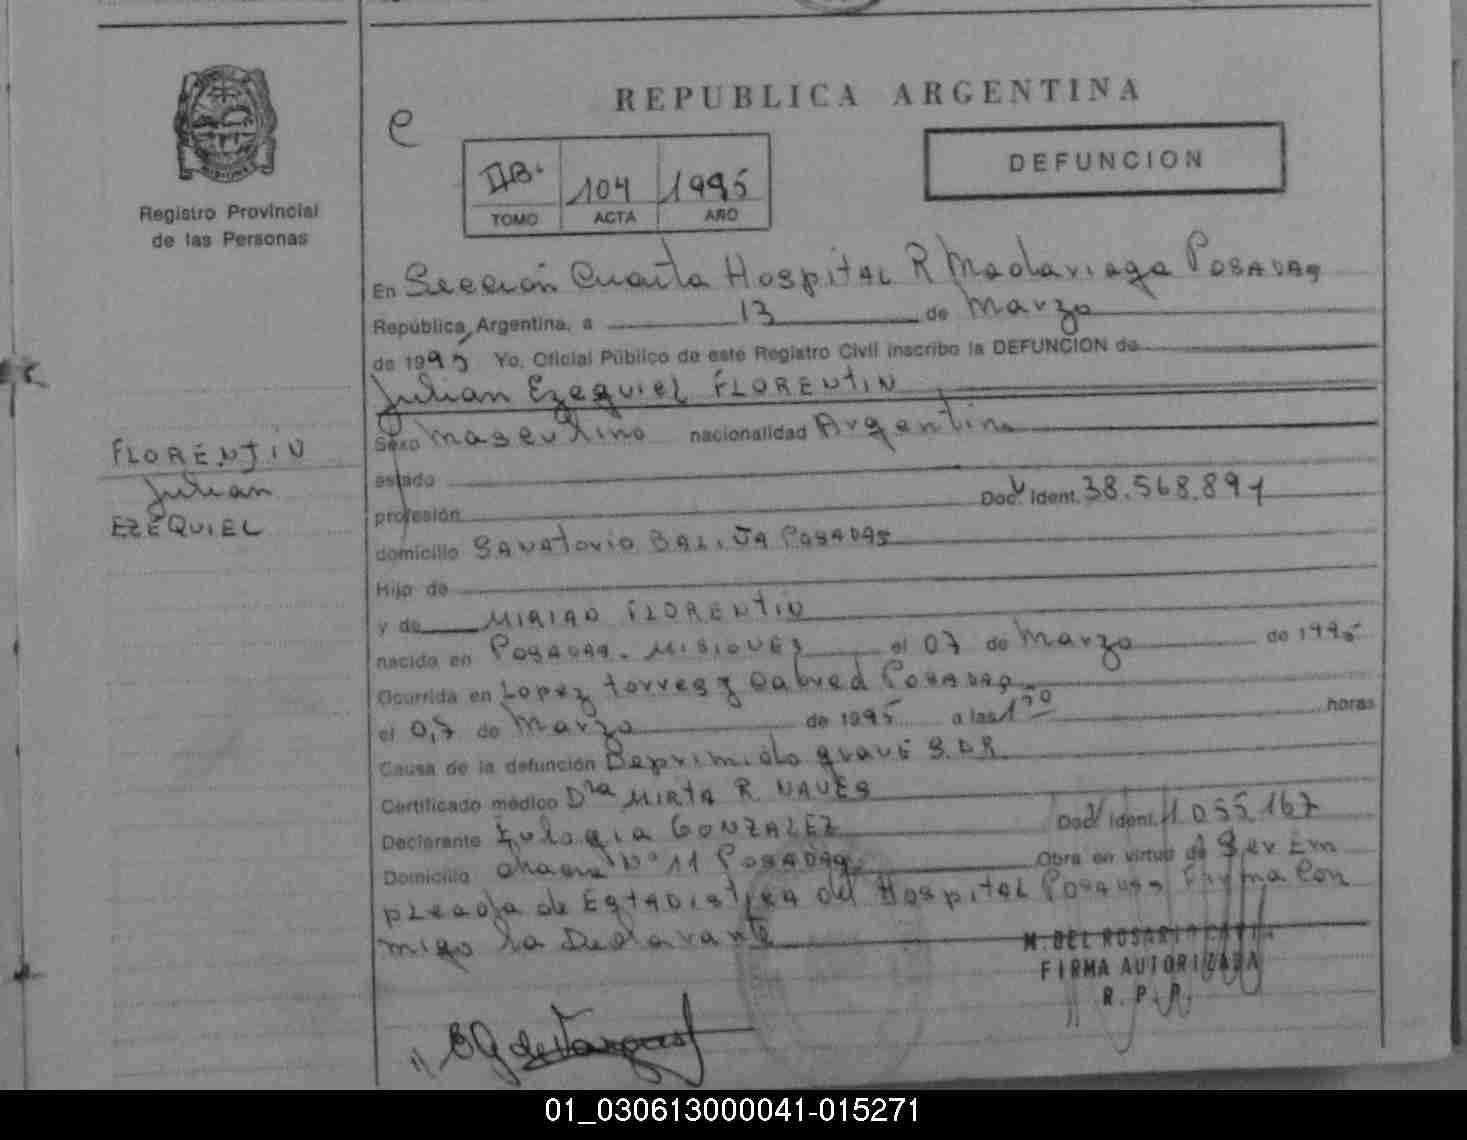 REPUBLICA ARGENTINA
e
DEFUNCION
IIB. 104 1995
TOMO ACTA AÑO
Registro Provincial
de las Personas
En Sección Cuarta Hospital R Madariaga POSADAS
República Argentina, a 13 de Marzo
de 1995 Yo, Oficial Público de este Registro Civil inscribo la DEFUNCION de
Julian Ezequiel FLORENTIN
Sexo masculino nacionalidad Argentina
FLORENTIN
Julian
EZEQUIEL
estado
profesión Doc. Ident. 38.568.891
domicilio SANATORIO BALIJA POSADAS
Hijo de
y de MIRIAN FLORENTIN
nacido en POSADAS. MISIONES el 07 de Marzo de 1995
Ocurrida en Lopez torres y Cabred POSADAS
el 07 de Marzo de 1995 a las 1 50 horas
Causa de la defunción Deprimido grave S.D.R.
Certificado médico Dra MIRTA R. NAVES
Declarante Eulogia GONZALEZ Doc. Ident. 1055167
Domicilio chacra Nº 11 POSADAS Obra en virtud de Ser Em
pleada de ESTADISTICA del HOSPITAL POSADAS Firma Con
migo la Declarante
M. DEL ROSARIO
FIRMA AUTORIZADA
R. P. P.
01_030613000041-015271